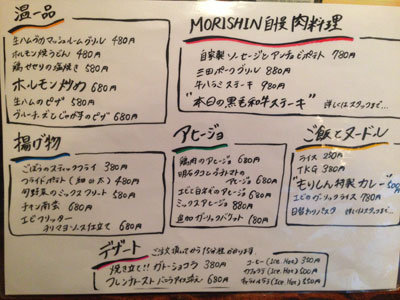 温一品
生ハムラのマッシュルームグリル 480円
ホルモン焼うどん 480円
鶏せせりの塩焼き 580円
ホルモン炒め 680円
生ハムのピザ 580円
ブルーチーズとじゃが芋のピザ 680円
MORISHIN自慢肉料理
自家製ソーセージとアンチョビポテト 780円
三田ポークグリル 880円
牛ハラミステーキ 980円
"本日の黒毛和牛ステーキ"
詳しくはスタッフまで…
揚げ物
ごぼうのスティックフライ 380円
フライドポテト(細or太) 480円
旬野菜のミックスフリット 580円
チキン南蛮 680円
エビフリッター
オリマヨソース仕立て 680円
アヒージョ
鶏肉のアヒージョ 680円
明石タコとプチトマトの
アヒージョ 680円
エビと日本のアヒージョ 680円
ミックスアヒージョ 880円
追加ガーリックバケット 180円
ご飯とヌードル
ライス 250円
TKG 380円
"もりしん特製カレー" 500円
エビのガーリックライス 780円
デザート
ご注文頂いてから15分程かかります。
焼き立て!!ガトーショコラ 380円
フレンチトースト バニラアイス添え 680円
コーヒー(Ice Hot) 300円
カフェラテ(Ice Hot) 350円
(Ice Hot) 350円